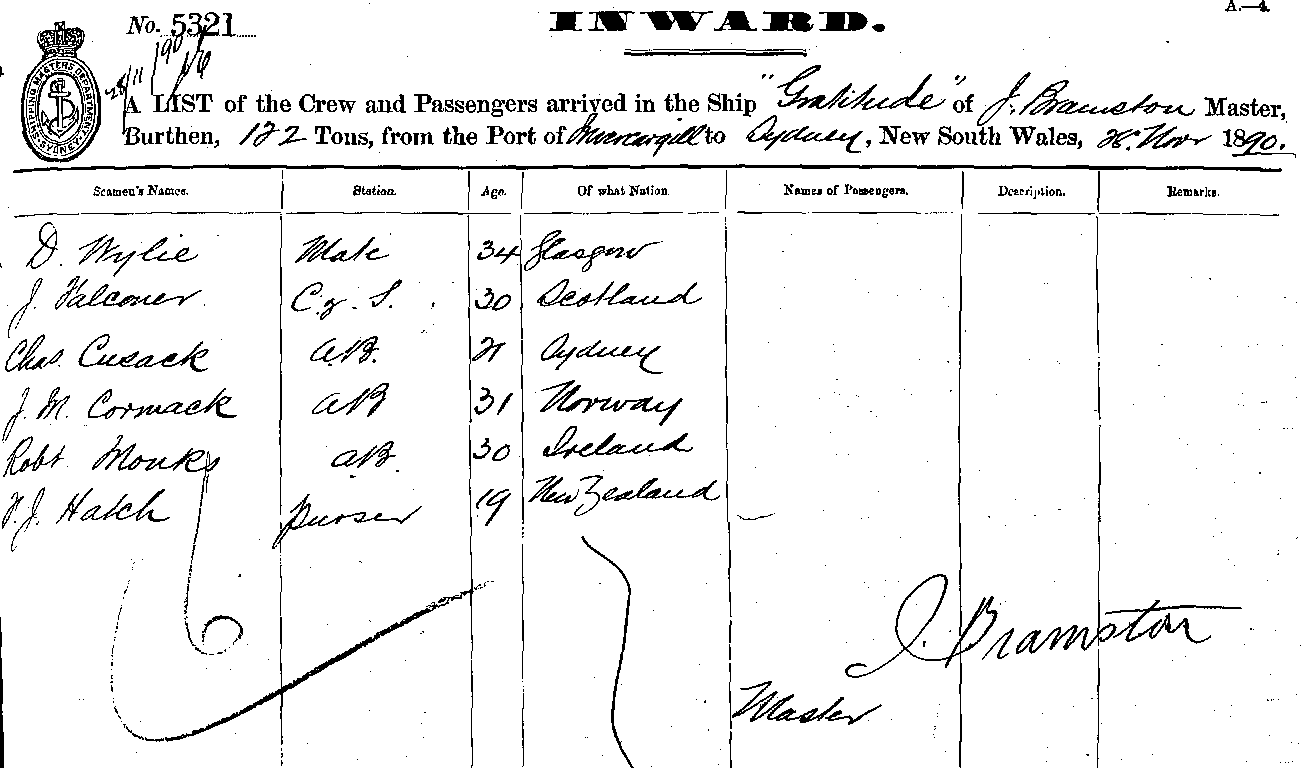 A.—4.
No. 5321
INWARD.
28/11/90
SHIPPING MASTERS DEPARTMENT SYDNEY
A LIST of the Crew and Passengers arrived in the Ship "Gratitude" of J. Bramston Master,
Burthen, 122 Tons, from the Port of Invercargill to Sydney, New South Wales, 28. Novr 1890.
Seamen's Names. Station. Age. Of what Nation. Names of Passengers. Description. Remarks.
D. Wylie Mate 34 Glasgow
J. Falconer C. & S. 30 Scotland
Chas. Cusack A.B. 21 Sydney
J. M. Cormack AB 31 Norway
Robt Monks AB. 30 Ireland
J. Hatch purser 19 New Zealand
6
J. Bramston
Master